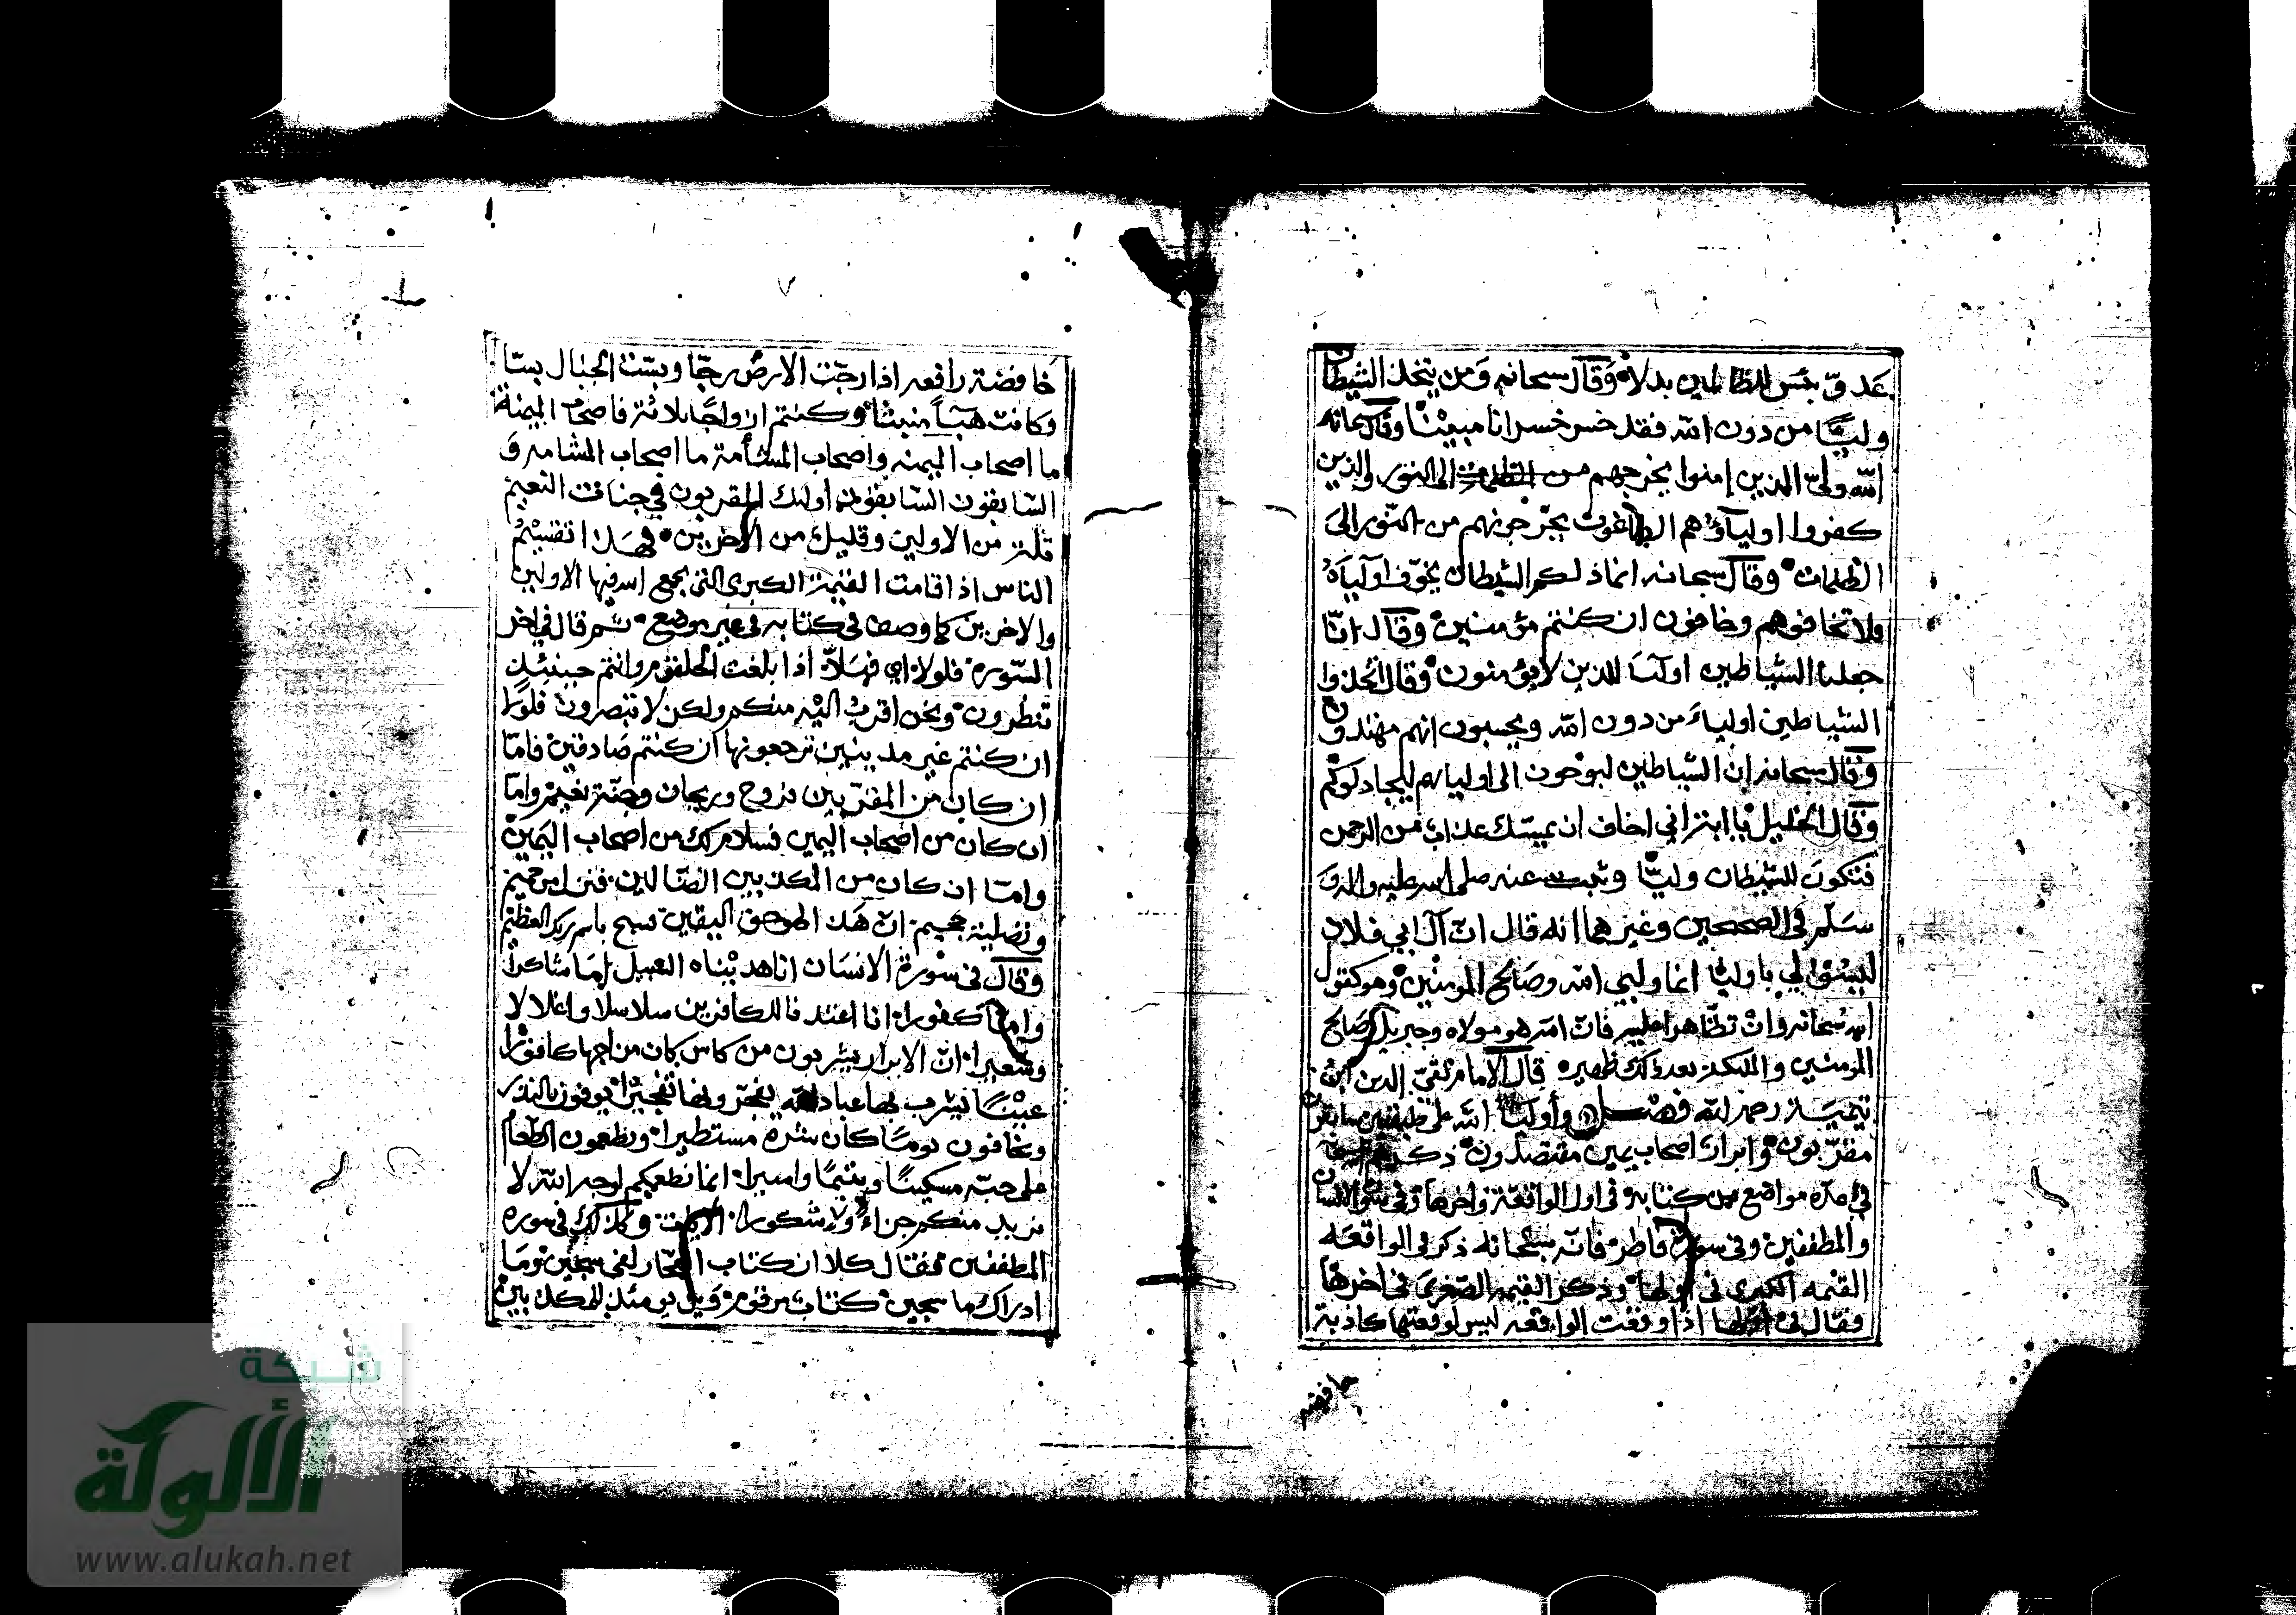 عدوّ بئس للظالمين بدلا وقال سبحانه ومن يتخذ الشيطان
وليّا من دون الله فقد خسر خسرانا مبينا وقال سبحانه
الله وليّ الذين امنوا يخرجهم من الظلمات الى النور والذين
كفروا اولياؤهم الطاغوت يخرجونهم من النّور الى
الظلمات وقال سبحانه انما ذلكم الشيطان يخوّف اولياءه
فلا تخافوهم وخافون ان كنتم مؤمنين وقال انّا
جعلنا الشياطين اوليا للذين لا يؤمنون وقال اتخذوا
الشياطين اولياء من دون الله ويحسبون انهم مهتدون
وقال سبحانه ان الشياطين ليوحون الى اوليائهم ليجادلوكم
وقال الخليل يا ابت اني اخاف ان يمسّك عذاب من الرحمن
فتكون للشيطان وليّا وثبت عنه صلى الله عليه واله و
سلّم في الصحيحين وغيرهما انه قال انّ آل ابي فلان
ليسوا لي باوليا انما وليي الله وصالح المومنين وهو كقول
الله سبحانه وان تظاهرا عليه فانّ الله هو مولاه وجبريل وصالح
المومنين والملئكة بعد ذلك ظهير قال الامام تقيّ الدين ابن
تيمية رحمه الله فصل واوليا الله على طبقتين سابقون
مقرّبون وابرار اصحاب يمين مقتصدون ذكرهم الله
في عدة مواضع من كتابه في اول الواقعة واخرها وفي سورة الانسان
والمطففين وفي سورة فاطر فانّه سبحانه ذكر في الواقعه
القيمه الكبرى في اولها وذكر القيمه الصّغرى في اخرها
فقال في اولها اذا وقعت الواقعه ليس لوقعتها كاذبة
خافضه
خافضة رافعه اذا رجّت الارض رجّا وبسّت الجبال بسّا
فكانت هبآ منبثا وكنتم ازواجا ثلاثة فاصحاب الميمنة
ما اصحاب الميمنه واصحاب المشأمة ما اصحاب المشامه و
السّابقون السّابقون اولئك المقربون في جنات النعيم
ثلّة من الاولين وقليل من الاخرين فهذا تقسيم
الناس اذا قامت القيمة الكبرى التي يجمع الله فيها الاولين
والاخرين كما وصف في كتابه في غير موضع ثم قال في اخر
السّورة فلولا اي فهلاّ اذا بلغت الحلقوم وانتم حينئذ
تنظرون ونحن اقرب اليه منكم ولكن لا تبصرون فلولا
ان كنتم غير مدينين ترجعونها ان كنتم صادقين فامّا
ان كان من المقرّبين فروح وريحان وجنّة نعيم وامّا
ان كان من اصحاب اليمين فسلام لك من اصحاب اليمين
وامّا ان كان من المكذبين الضّالين فنزل من حميم
وتصلية جحيم انّ هذا لهو حق اليقين فسبح باسم ربك العظيم
وقال في سورة الانسان انا هديناه السبيل اما شاكرا
واما كفورا انا اعتدنا للكافرين سلاسلا واغلالا
وسعيرا انّ الابرار يشربون من كاس كان مزاجها كافورا
عينًا يشرب بها عباد الله يفجّرونها تفجيرا يوفون بالنذر
ويخافون يومًا كان شره مستطيرا ويطعمون الطعام
على حبّه مسكينًا ويتيمًا واسيرا انما نطعمكم لوجه الله لا
نريد منكم جزاءً ولا شكورا الايات وكذلك في سورة
المطففين فقال كلا ان كتاب الفجّار لفي سجين وما
ادراك ما سجين كتاب مرقوم ويل يومئذ للمكذبين
شبكة
الألوكة
www.alukah.net